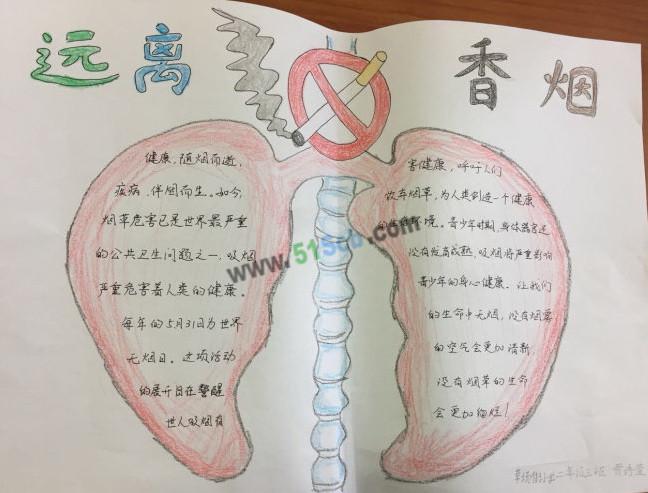 远离 香烟
健康，随烟而逝，
疾病，伴烟而生。如今，
烟草危害已是世界最严重
的公共卫生问题之一，吸烟
严重危害着人类的健康。
每年的5月31日为世界
无烟日。这项活动
的展开旨在警醒
世人吸烟有
害健康，呼吁人们
放弃烟草，为人类创造一个健康
的 环境。青少年时期，身体器官还
没有发育成熟，吸烟将严重影响
青少年的身心健康。让我们
的生命中无烟，没有烟雾
的空气会更加清新，
没有烟草的生命
会更加绚烂！
二年级三班
www.515 .com